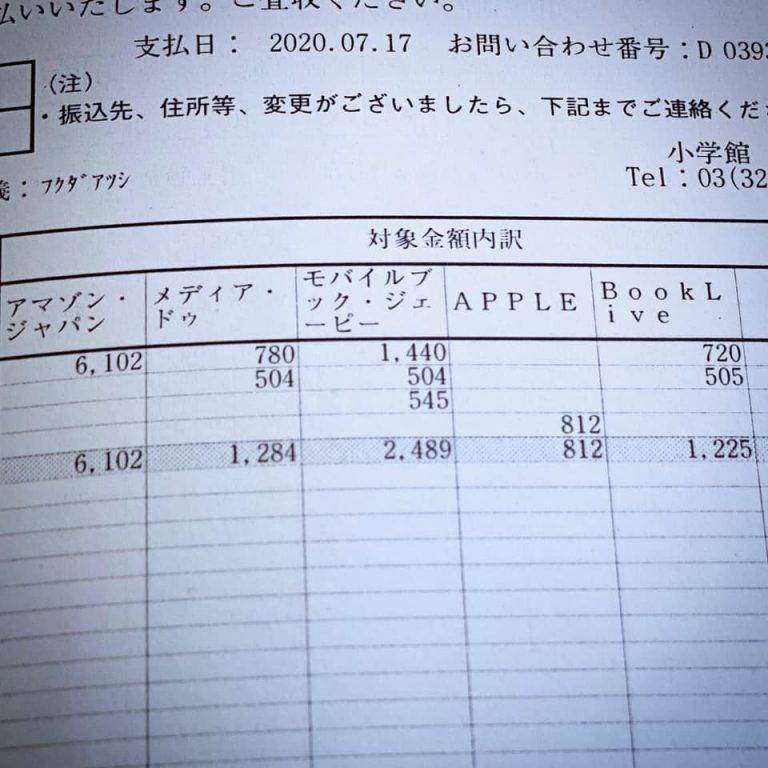 払いいたします。ご査収ください。
支払日： 2020.07.17 お問い合わせ番号：D 0393
（注）
・振込先、住所等、変更がございましたら、下記までご連絡くださ
小学館
：ﾌｸﾀﾞｱﾂｼ
Tel：03(32
対象金額内訳
アマゾン・ジャパン メディア・ドゥ モバイルブック・ジェーピー ＡＰＰＬＥ ＢｏｏｋＬｉｖｅ
6,102 780 1,440 720
504 504 505
545
812
6,102 1,284 2,489 812 1,225